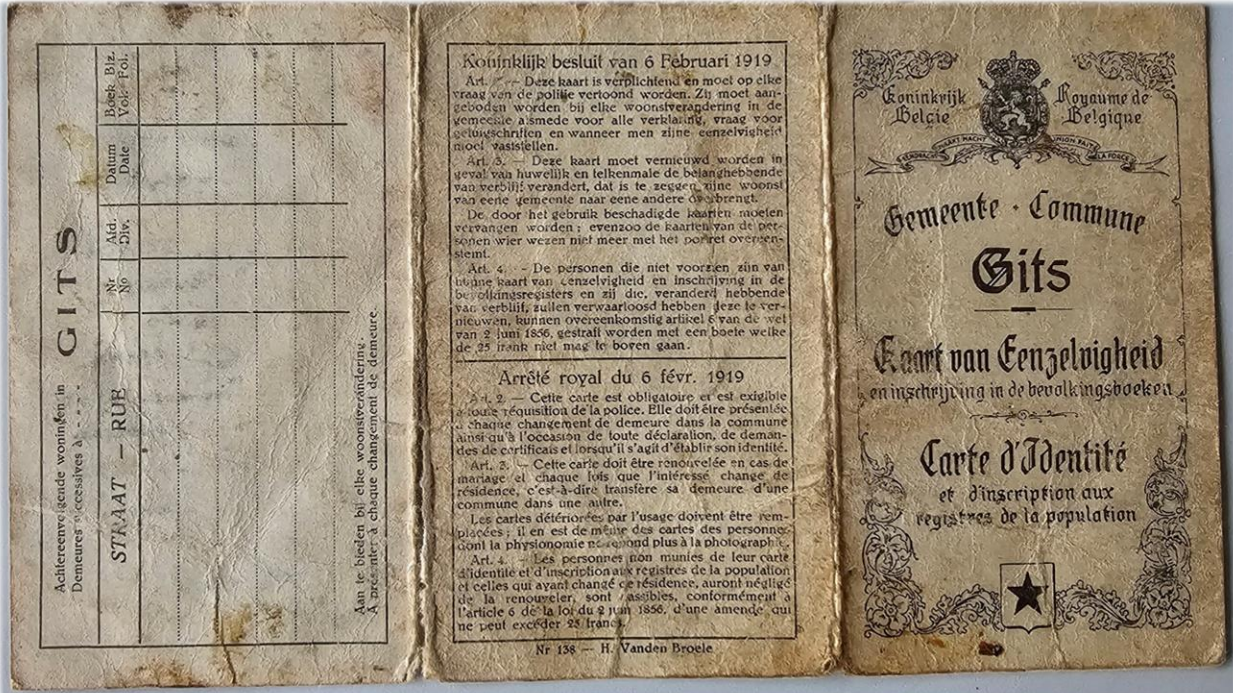 Achtereenvolgende woningen in
Demeures successives à - - - - GITS
STRAAT — RUE
Nr
No
Afd.
Div.
Datum
Date
Boek Blz.
Vol. Fol.
Aan te bieden bij elke woonstverandering.
A présenter à chaque changement de demeure.
Koninklijk besluit van 6 Februari 1919
Art. — Deze kaart is verplichtend en moet op elke
vraag van de politie vertoond worden. Zij moet aan-
geboden worden bij elke woonstverandering in de
gemeente alsmede voor alle verklaring, vraag voor
getuigschriften en wanneer men zijne eenzelvigheid
moet vaststellen.
Art. 3. — Deze kaart moet vernieuwd worden in
geval van huwelijk en telkenmale de belanghebbende
van verblijf verandert, dat is te zeggen zijne woonst
van eene gemeente naar eene andere overbrengt.
De door het gebruik beschadigde kaarten moeten
vervangen worden ; evenzoo de kaarten van de per-
sonen wier wezen niet meer met het portret overeen-
stemt.
Art. 4. - De personen die niet voorzien zijn van
hunne kaart van eenzelvigheid en inschrijving in de
bevolkingsregisters en zij die, veranderd hebbende
van verblijf, zullen verwaarloosd hebben deze te ver-
nieuwen, kunnen overeenkomstig artikel 6 van de wet
van 2 juni 1856, gestraft worden met een boete welke
de 25 frank niet mag te boven gaan.
Arrêté royal du 6 févr. 1919
Art. 2. — Cette carte est obligatoire et est exigible
à toute réquisition de la police. Elle doit être présentée
à chaque changement de demeure dans la commune
ainsi qu'à l'occasion de toute déclaration, de deman-
des de certificats et lorsqu'il s'agit d'établir son identité.
Art. 3. — Cette carte doit être renouvelée en cas de
mariage et chaque fois que l'intéressé change de
résidence, c'est-à-dire transfère sa demeure d'une
commune dans une autre.
Les cartes détériorées par l'usage doivent être rem-
placées ; il en est de même des cartes des personnes
dont la physionomie ne répond plus à la photographie.
Art. 4. — Les personnes non munies de leur carte
d'identité et d'inscription aux registres de la population
et celles qui ayant changé de résidence, auront négligé
de la renouveler, sont passibles, conformément à
l'article 6 de la loi du 2 juin 1856, d'une amende qui
ne peut excéder 25 francs.
Nr 138 — H. Vanden Broele
Koninkrijk Royaume de
Belgie Belgique
EENDRACHT MAAKT MACHT L'UNION FAIT LA FORCE
Gemeente - Commune
Gits
Kaart van Eenzelvigheid
en inschrijving in de bevolkingsboeken
Carte d'Identité
et d'inscription aux
registres de la population